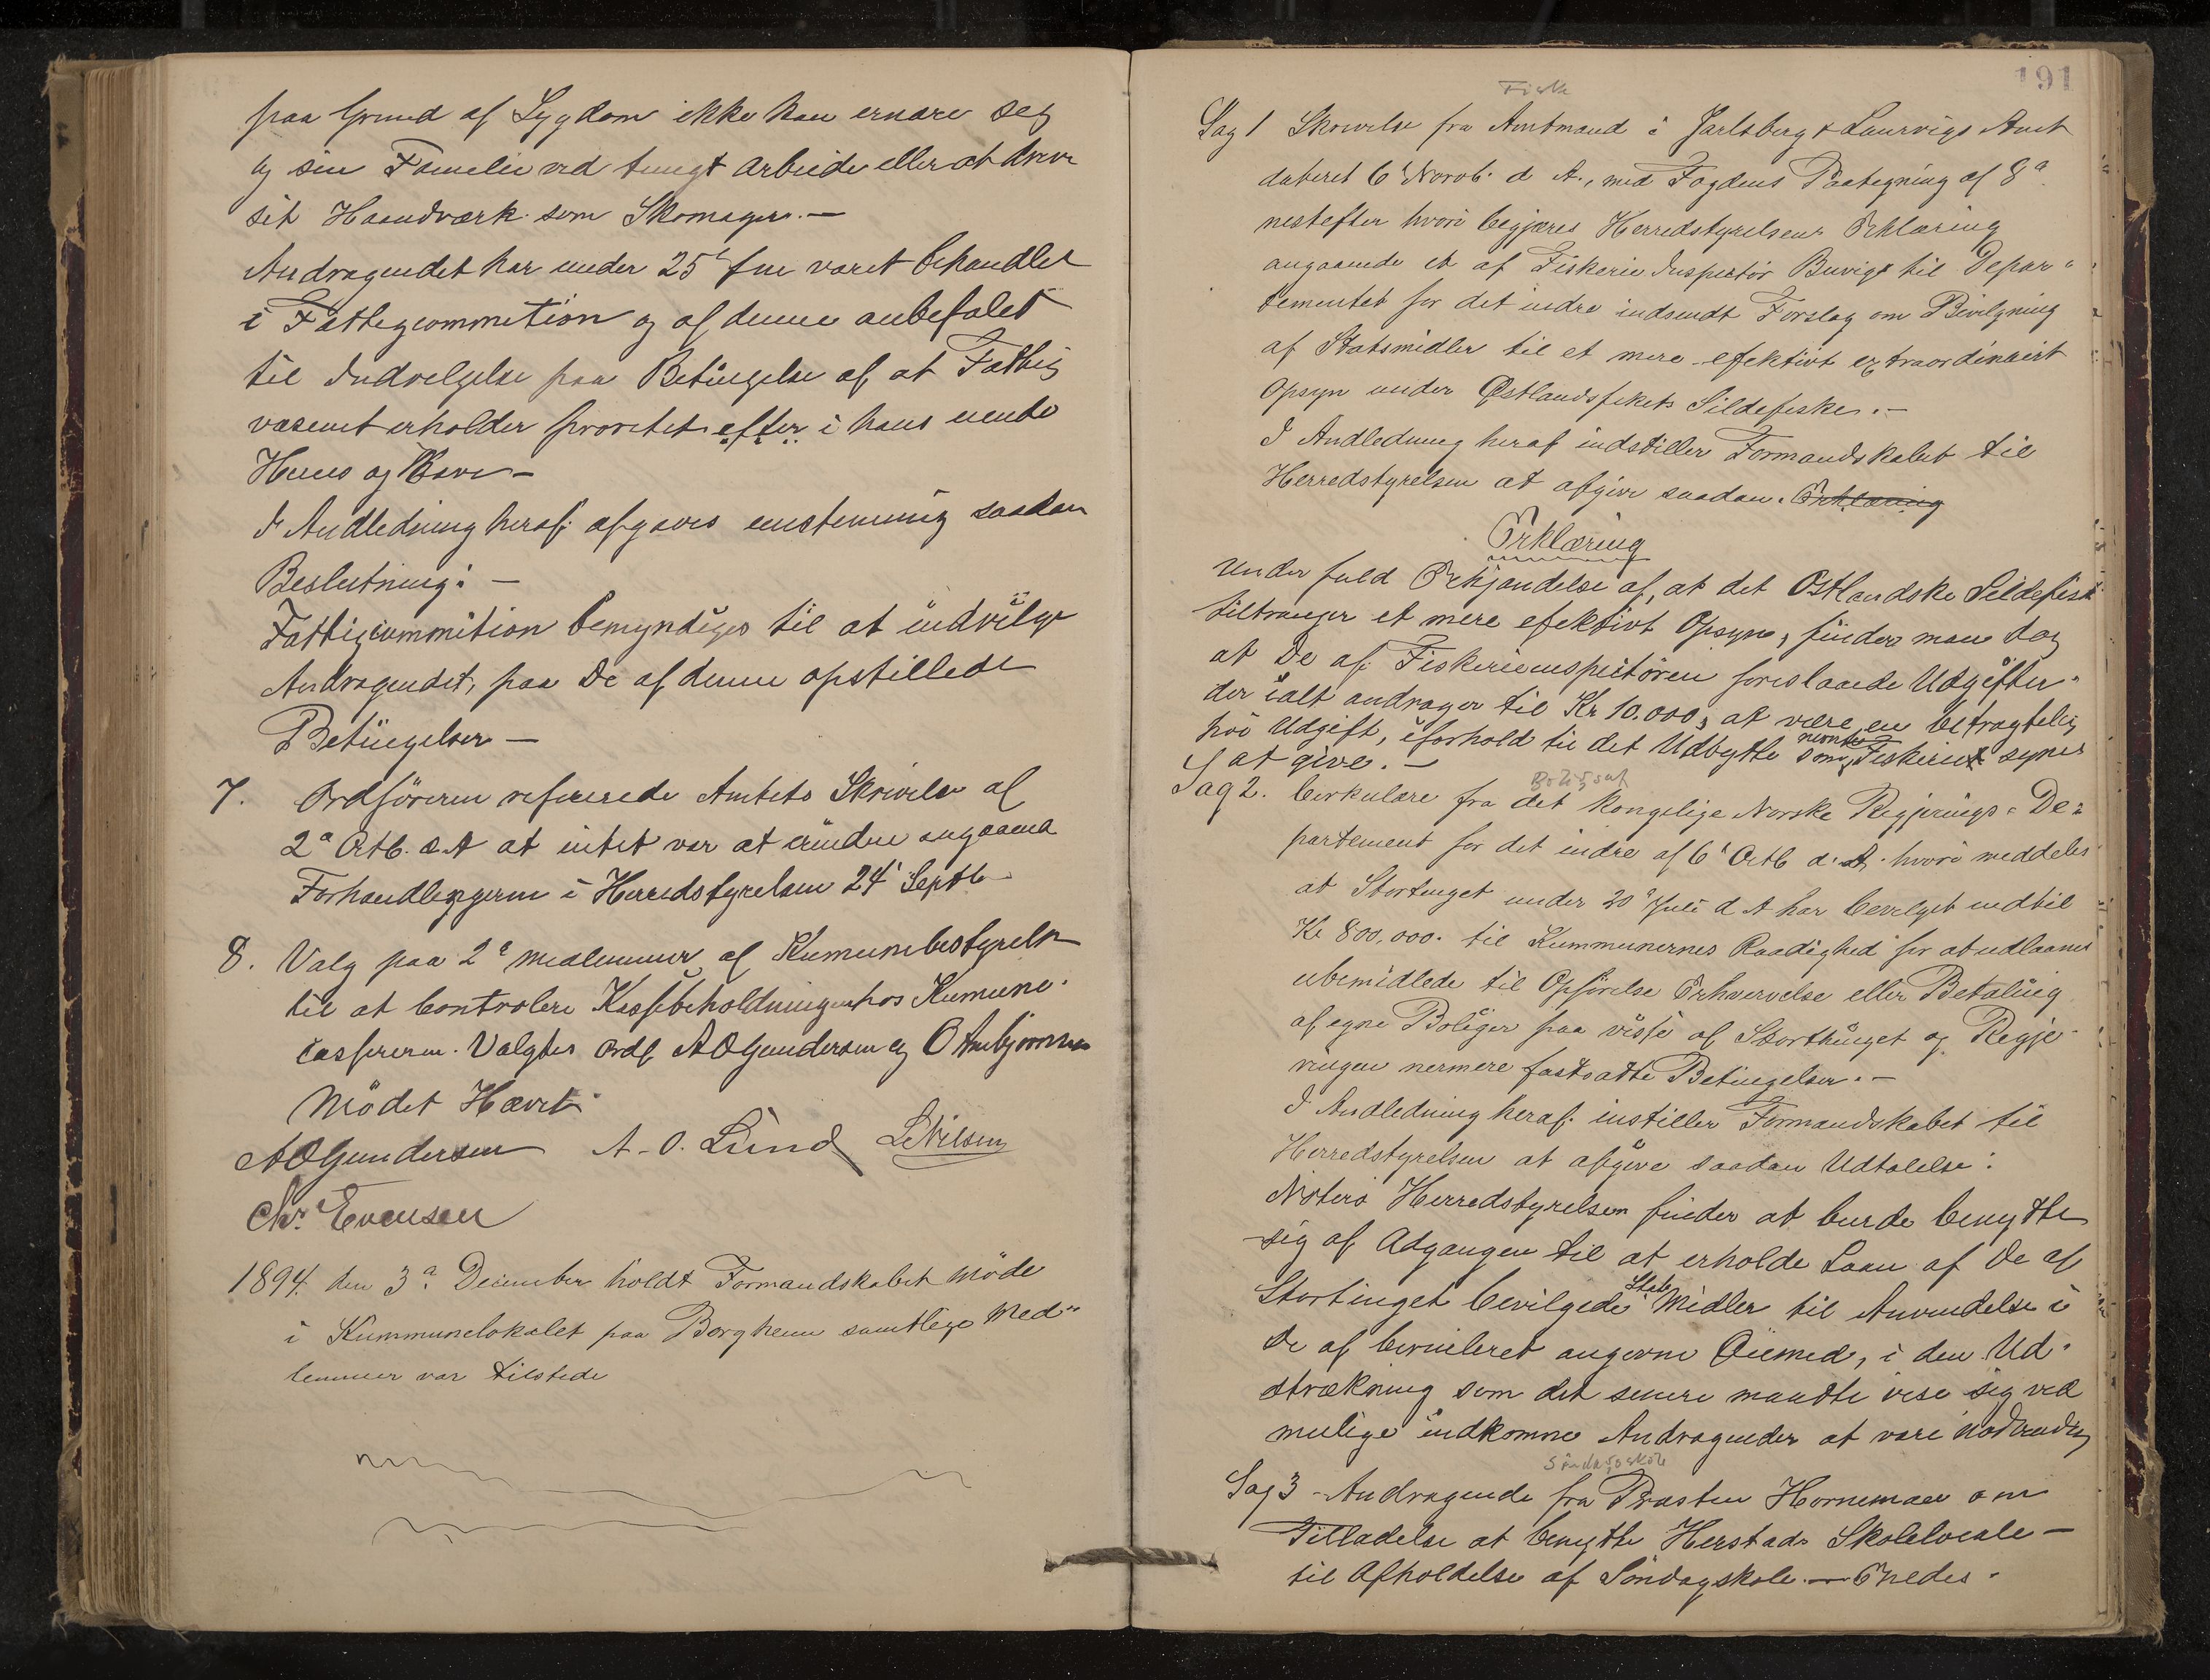 paa Grund af Sygdom ikke kan ernære seg
og sin Familie ved tungt Arbeide eller at drive
sit Haandværk som Skomager. —
Andragendet har under 25' f m været behandlet
i Fattigcommition og af denne anbefalet
til Indvelgelse paa Betingelse af at Fattig
væsenet erholder prioritet efter i hans
Huus og Have —
I Andledning heraf afgaves enstemmig saadan
Beslutning: —
Fattigcommition bemyndiges til at indvilge
Andragendet, paa de af denne opstillede
Betingelser —
7. Ordföreren refererede Amtets Skrivelse af
2a Octb. d. A at intet var at erindre angaaende
Forhandlingerne i Herredstyrelsen 24' Septb
8. Valg paa 2a medlemmer af Kumunebestyrelsen
til at Controlere Kassebeholdningen hos Kumune
casserern. Valgtes Ordf AOGundersen og O Anbjörnsen
Mödet Hævet
AOGundersen A. O. Lund L Nilsen
Chr. Evensen
1894. den 3a December holdt Formandskabet Möde
i Kummunelokalet paa Borgheim samtlige Med"
lemmer var tilstede
191
Fiske
Sag 1 Skrivelse fra Amtmand i Jarlsberg & Laurvigs Amt
dateret 6' Novb. d A., med Fogdens Paategning af 8a
nestefter hvori begjæres Herredstyrelsens Erklæring
angaaende et af Fiskerie Inspektör Buvig til Depar"
tementet for det indre indsendt Forslag om Bivilgning
af Statsmidler til et mere efektivt extraordinairt
Opsyn under Østlandsfikets Sildefiske. —
I Andledning heraf indstiller Formandskabet til
Herredstyrelsen at afgive saadan. Erklæring
Erklæring
Under fuld Erkjendelse af, at det Ostlandske Sildefiske
tiltrænger et mere efektivt Opsyn, finder man dog
at De af Fiskerieinspektören foreslaaede Udgifter"
der ialt andrager til Kr 10.000, at være en betragtelig
höi Udgift, iforhold til det Udbytte som nevnte Fiskerie synes
at give. —
Boligsag
Sag 2. Cirkulære fra det kongelige Norske Regjerings = De=
partement for det indre af 6' Octb d. A. hvori meddeles
at Stortinget under 20a Juli d A har bevilget indtil
Kr 800,000. til Kummunernes Raadighed for at udlaanes
ubemidlede til Opförelse Erhvervelse eller Betaling
af egne Boliger paa visse af Storthinget og Regje-
ringen nermere fastsatte Betingelser. —
I Andledning heraf instiller Formandskabet til
Herredstyrelsen at afgive saadan Udtalelse:
Nöterö Herredstyrelsen finder at burde benytte
sig af Adgangen til at erholde Laan af De af
Stortinget bevilgede Stats Midler til Anvendelse i
De af Cirkuleret angivne Öiemed, i den Ud"
strækning som det senere maatte vise sig ved
mulige indkomne Andragender at være nödvendig
Söndagsskole
Sag 3 - Andragende fra Præsten Horneman om
Tilladelse at benytte Herstads Skolelocale —
til Afholdelse af Söndagskole. —